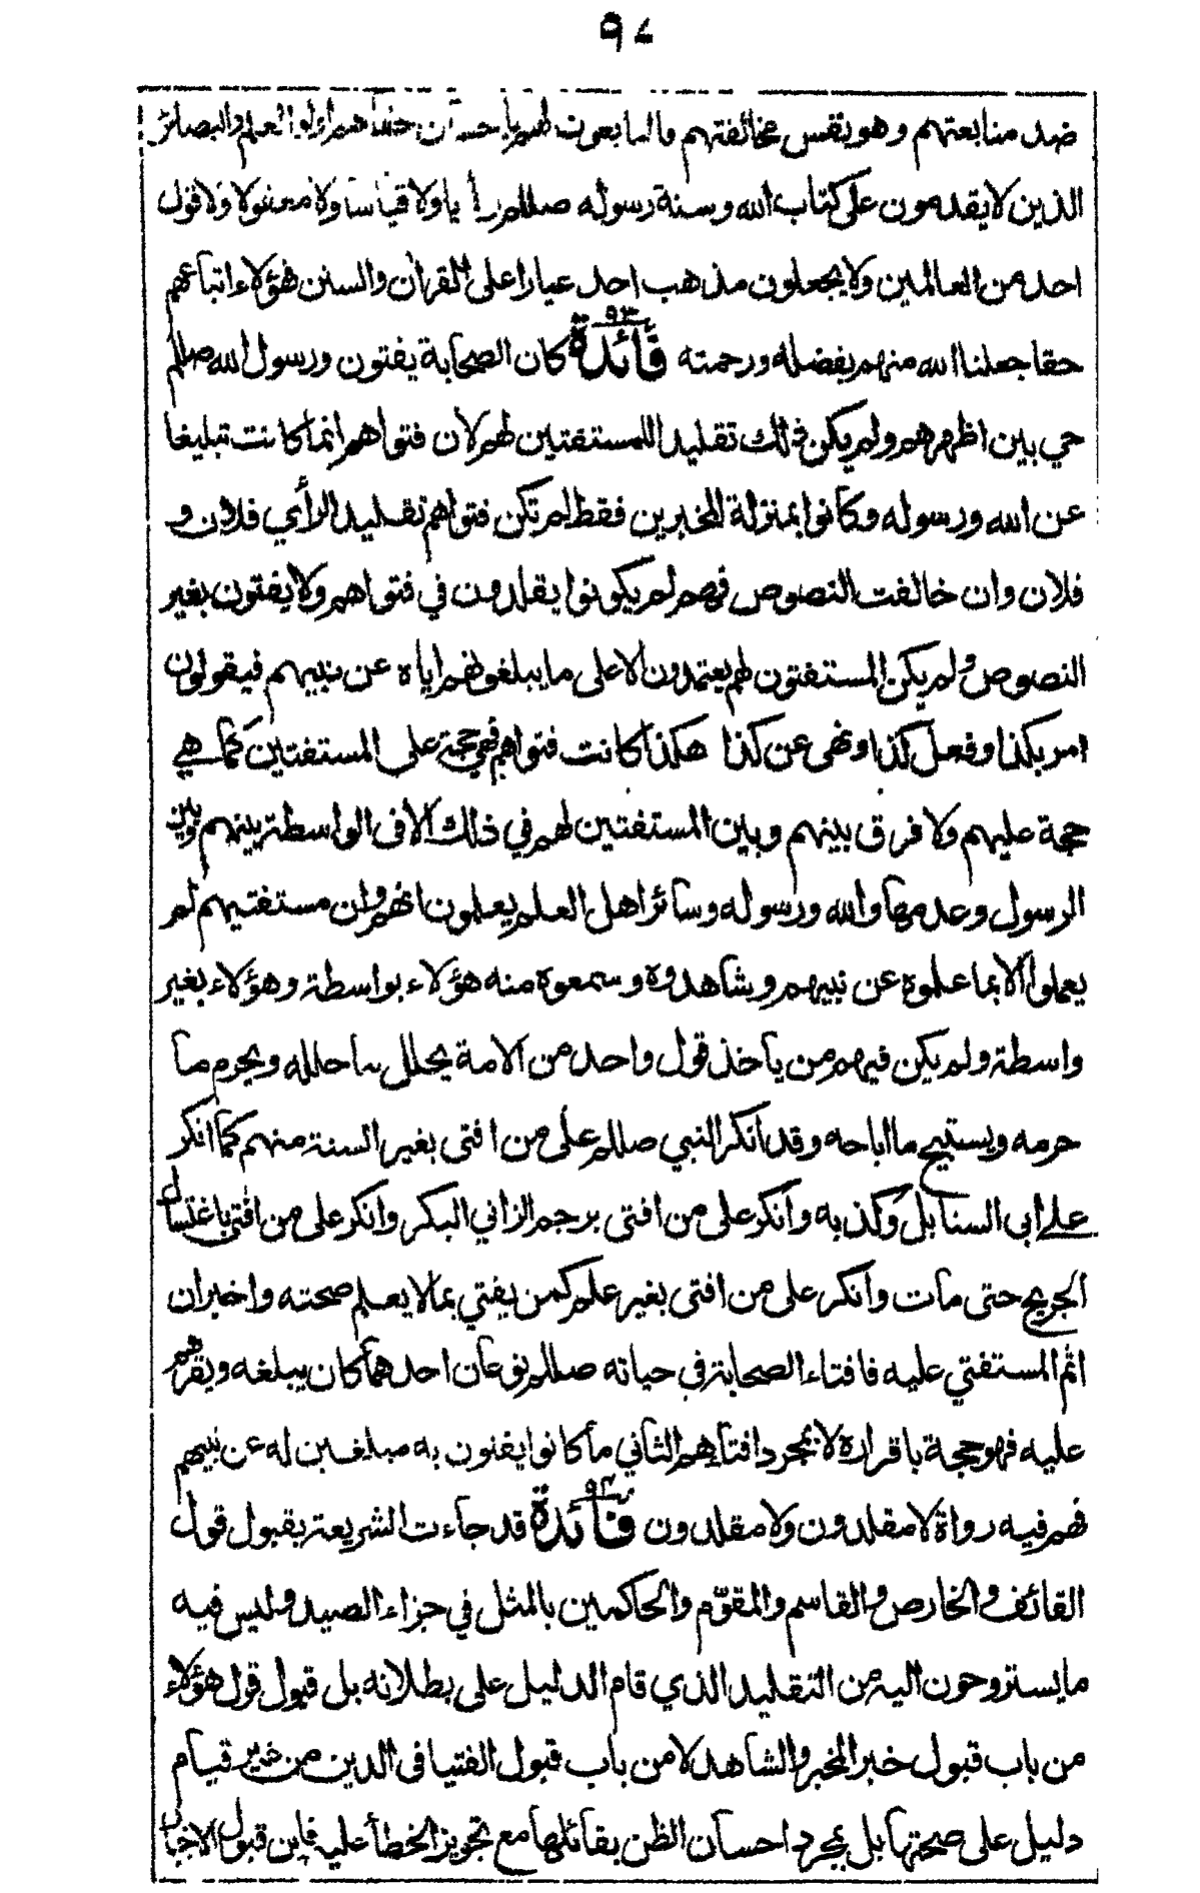 ٩٧
ضد متابعتهم وهو نفس مخالفتهم فالتابعون لهم باحسان حقا هم اولو العلم والبصائر
الذين لا يقدمون على كتاب الله وسنة رسوله صللم رأيا ولا قياسا ولا معقولا ولا قول
احد من العالمين ولا يجعلون مذهب احد عيارا على القران والسنن فهؤلاء اتباعهم
حقا جعلنا الله منهم بفضله ورحمته فائدة ٩٣ كان الصحابة يفتون ورسول الله صللم
حي بين اظهرهم ولم يكن ذلك تقليدا للمستفتين لهم لان فتواهم انما كانت تبليغا
عن الله ورسوله وكانوا بمنزلة المخبرين فقط لم تكن فتواهم تقليدا لرأي فلان و
فلان وان خالفت النصوص فهم لم يكونوا يقلدون في فتواهم ولا يفتون بغير
النصوص ولم يكن المستفتون لهم يعتمدون الا على ما يبلغونهم اياه عن نبيهم فيقولون
امر بكذا وفعل كذا ونهى عن كذا هكذا كانت فتواهم فهي حجة على المستفتين كما هي
حجة عليهم ولا فرق بينهم وبين المستفتين لهم في ذلك الا في الواسطة بينهم وبين
الرسول وعدمها والله ورسوله وسائر اهل العلم يعلمون انهم وان مستفتيهم لم
يعملوا الا بما علموه عن نبيهم وشاهدوه وسمعوه منه هؤلاء بواسطة وهؤلاء بغير
واسطة ولم يكن فيهم من ياخذ قول واحد من الامة يحلل ما حلله ويحرم ما
حرمه ويستبيح ما اباحه وقد انكر النبي صللم على من افتى بغير السنة منهم كما انكر
على ابى السنابل وكذبه وانكر على من افتى برجم الزاني البكر وانكر على من افتى باغتسال
الجريح حتى مات وانكر على من افتى بغير علم كمن يفتي بما لا يعلم صحته واخبر ان
اثم المستفتي عليه فافتاء الصحابة في حياته صللم نوعان احدهما كان يبلغه ويقرهم
عليه فهو حجة باقراره لا بمجرد افتائهم الثاني ما كانوا يفتون به مبلغين له عن نبيهم
فهم فيه رواة لا مقلدون ولا مقلدون فائدة ٩٤ قد جاءت الشريعة بقبول قول
القائف والخارص والقاسم والمقوّم والحاكمين بالمثل في جزاء الصيد وليس فيه
ما يستروحون اليه من التقليد الذي قام الدليل على بطلانه بل قبول قول هؤلاء
من باب قبول خبر المخبر والشاهد لا من باب قبول الفتيا فى الدين من غير قيام
دليل على صحتها بل بمجرد احسان الظن بقائلها مع تجويز الخطأ عليه فاين قبول الاخبار